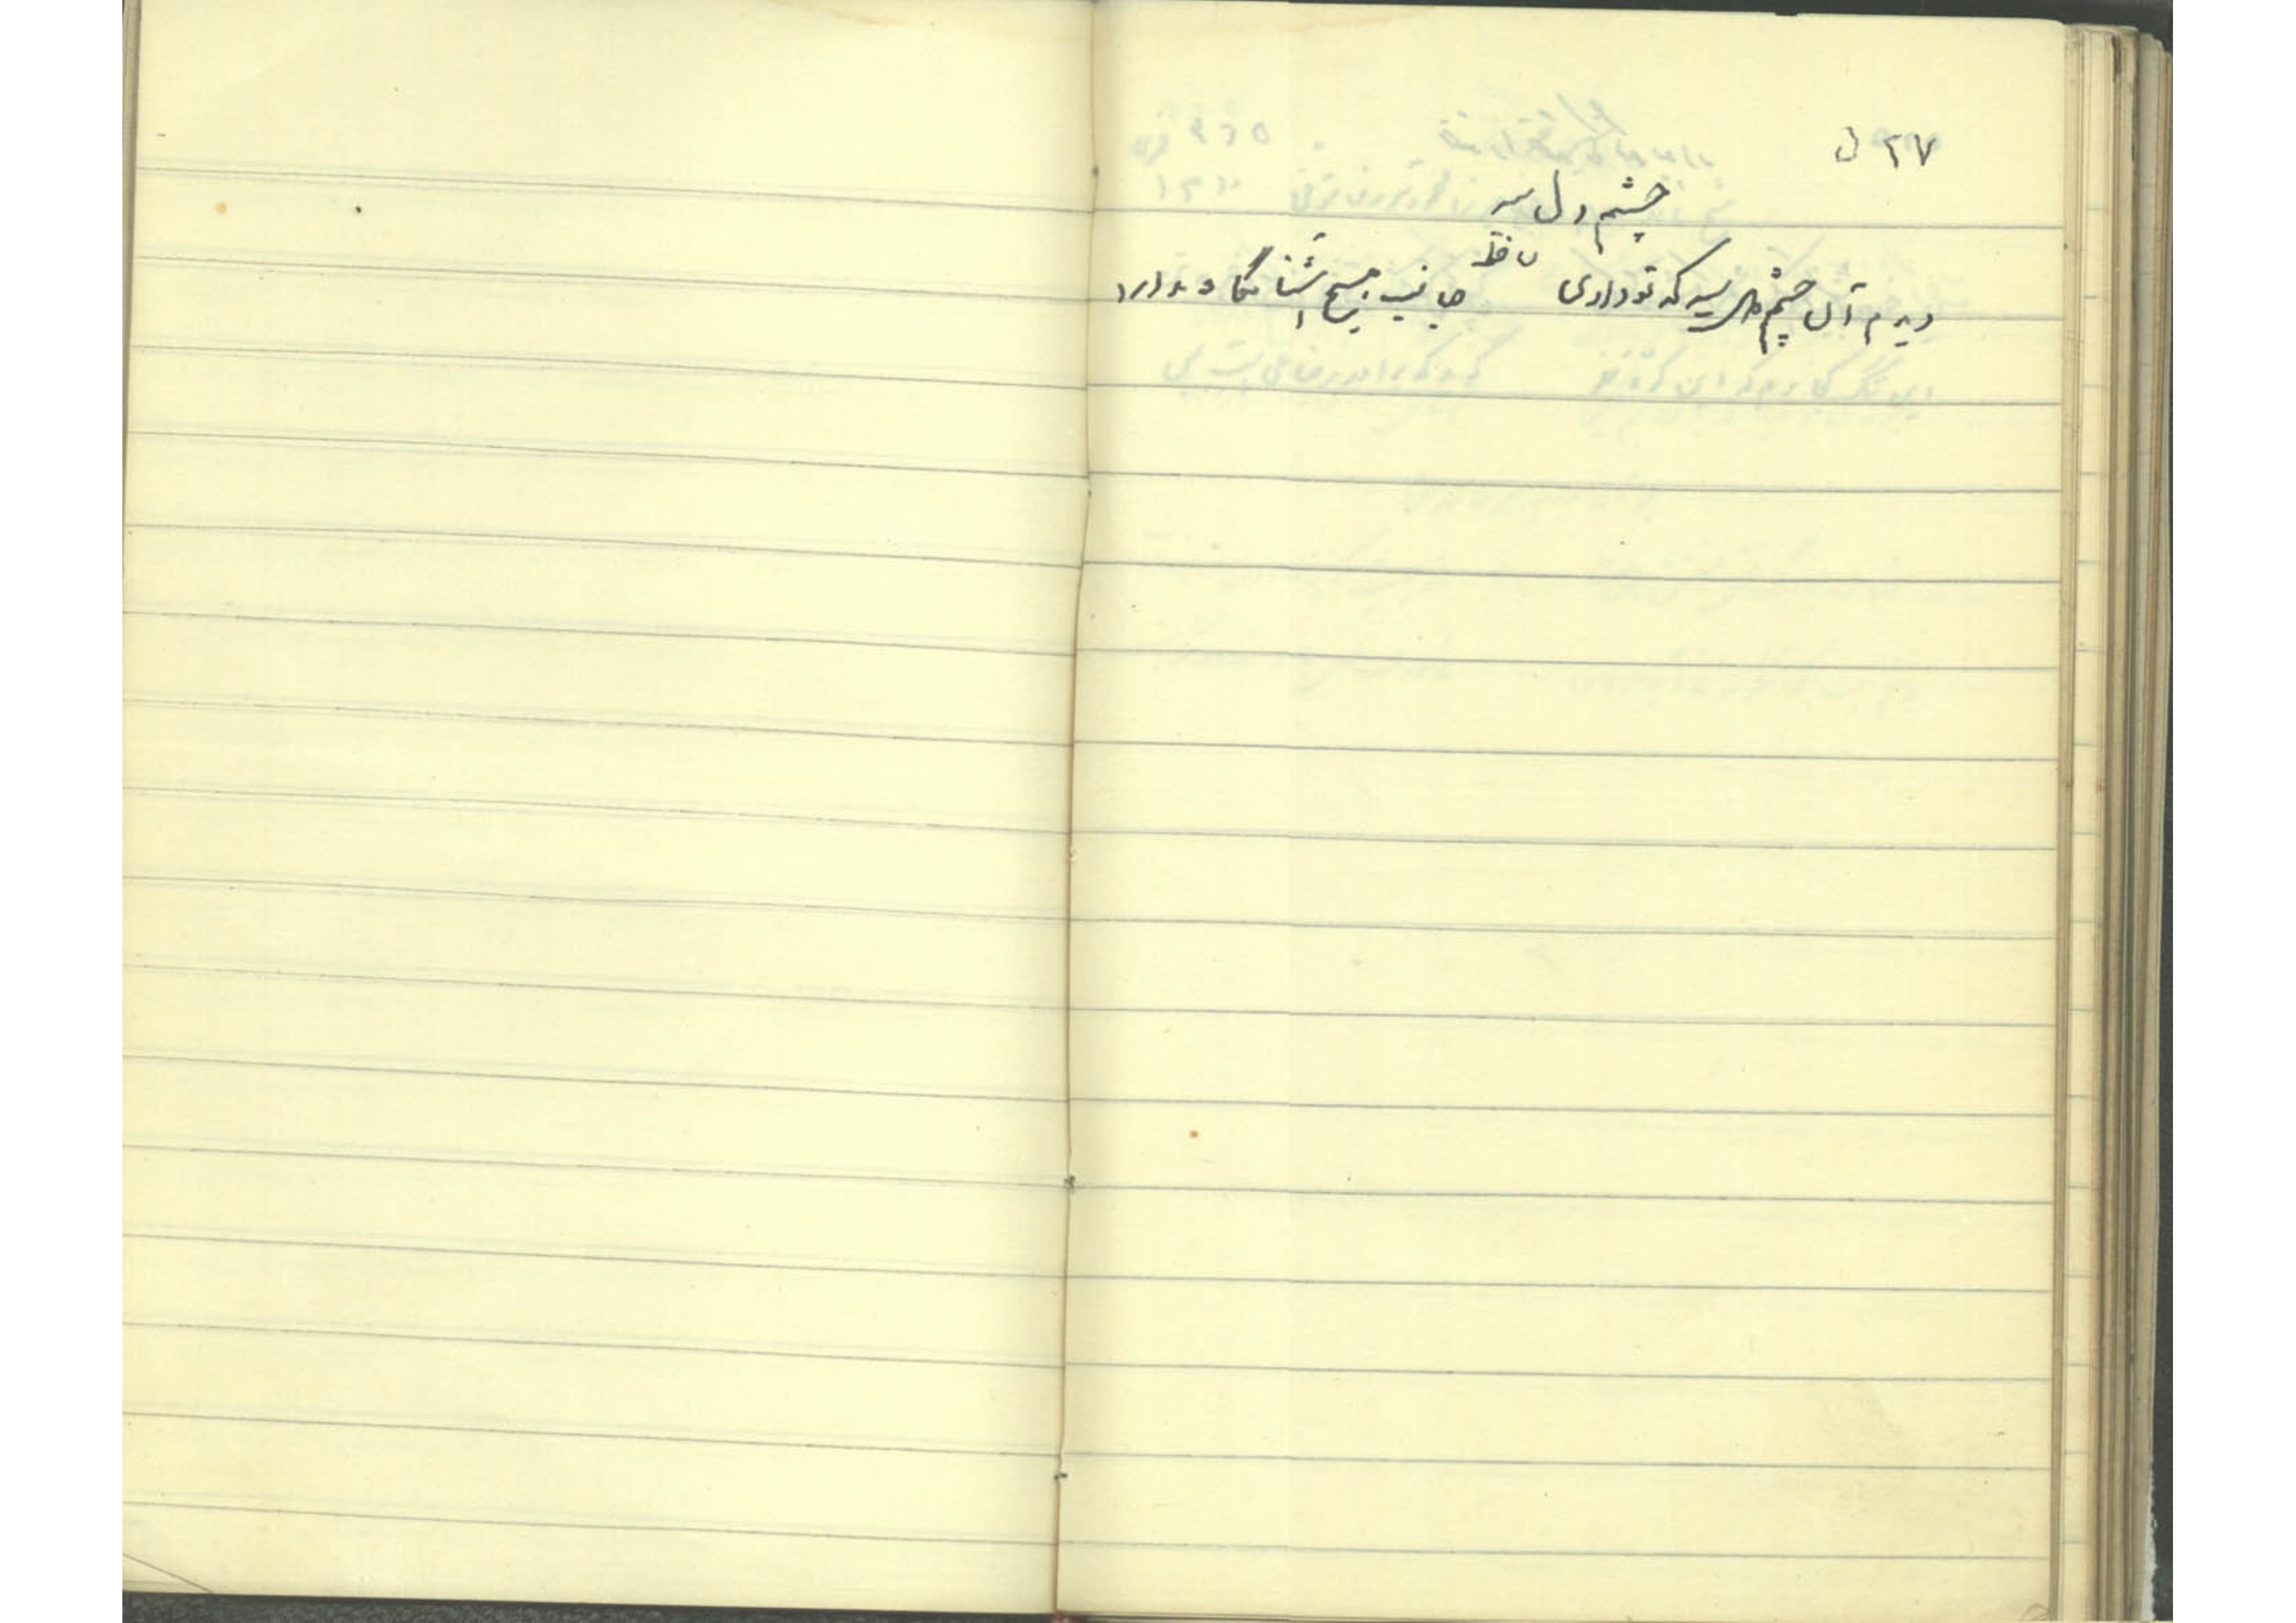 ۲۷ ل
چشم دل سیه
حافظ
دیدم آن چشم دل سیه که تو داری جانب هیچ آشنا نگاه ندارد